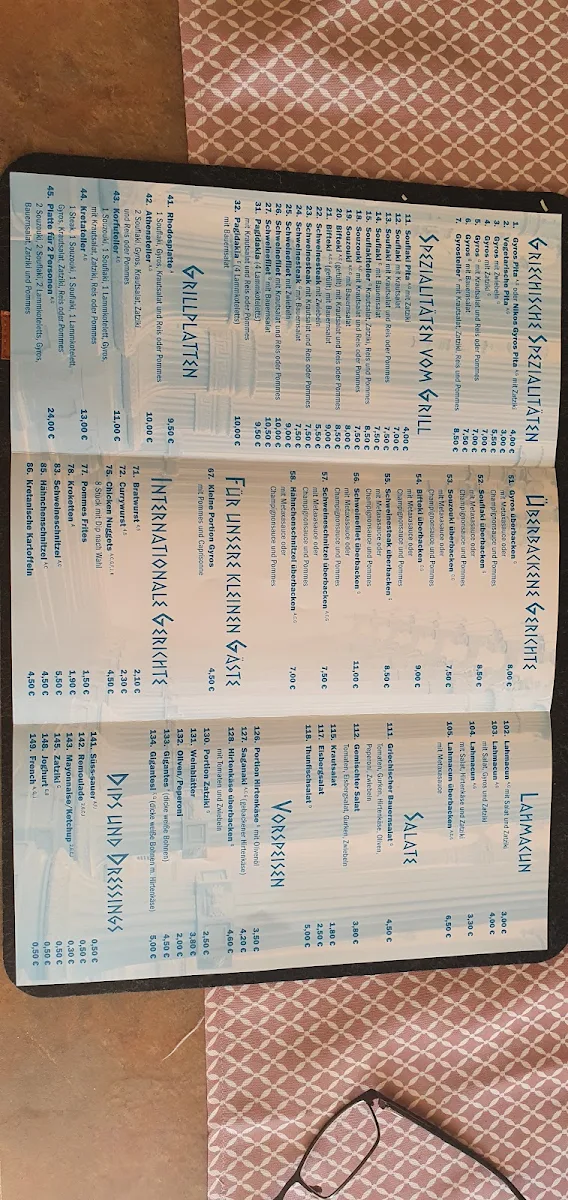 GRIECHISCHE SPEZIALITÄTEN
1. Gyros Pita oder Nikos Gyros Pita mit Zatziki 4,00 €
2. Vegetarische Pita 3,00 €
3. Gyros mit Zwiebeln 5,00 €
4. Gyros mit Zatziki 7,00 €
5. Gyros mit Krautsalat und Reis oder Pommes
6. Gyros mit Bauernsalat
7. Gyrosteller mit Krautsalat, Zatziki, Reis und Pommes 8,50 €
SPEZIALITÄTEN VOM GRILL
11. Souflaki Pita mit Zatziki 4,00 €
12. Souflaki mit Krautsalat
13. Souflaki mit Krautsalat und Reis oder Pommes
14. Souflaki mit Bauernsalat
15. Souflakiteller Krautsalat, Zatziki, Reis und Pommes
18. Souzouki mit Krautsalat und Reis oder Pommes
19. Souzouki mit Bauernsalat
20. Bifteki (gefüllt) mit Krautsalat und Reis oder Pommes
21. Bifteki (gefüllt) mit Bauernsalat
22. Schweinesteak mit Zwiebeln
23. Schweinesteak mit Krautsalat und Reis oder Pommes
24. Schweinesteak mit Bauernsalat
25. Schweinefilet mit Zwiebeln
26. Schweinefilet mit Krautsalat und Reis oder Pommes
27. Schweinefilet mit Bauernsalat
31. Pagidakia (4 Lammkoteletts) 9,50 €
mit Krautsalat und Reis oder Pommes
32. Pagidakia (4 Lammkoteletts) 10,00 €
mit Bauernsalat
GRILLPLATTEN
41. Rhodosplatte 9,50 €
1 Souflaki, Gyros, Krautsalat und Reis oder Pommes
42. Athenateller 10,00 €
2 Souflaki, Gyros, Krautsalat, Zatziki
und Reis oder Pommes
43. Korfuteller 11,00 €
1 Souzouki, 1 Souflaki, 1 Lammkotelett, Gyros,
mit Krautsalat, Zatziki, Reis oder Pommes
44. Kretateller 13,00 €
1 Steak, 1 Souflaki, 1 Lammkotelett,
Gyros, Krautsalat, Zatziki, Reis oder Pommes
45. Platte für 2 Personen 24,00 €
2 Souzouki, 2 Souflaki, 2 Lammkoteletts, Gyros,
Bauernsalat, Zatziki und Pommes
ÜBERBACKENE GERICHTE
51. Gyros überbacken 8,00 €
mit Metaxasauce oder
Champignonsauce und Pommes
52. Souflaki überbacken 8,50 €
mit Metaxasauce oder
Champignonsauce und Pommes
53. Souzouki überbacken 7,50 €
mit Metaxasauce oder
Champignonsauce und Pommes
54. Bifteki überbacken 9,00 €
mit Metaxasauce oder
Champignonsauce und Pommes
55. Schweinesteak überbacken 8,50 €
mit Metaxasauce oder
Champignonsauce und Pommes
56. Schweinefilet überbacken 11,00 €
mit Metaxasauce oder
Champignonsauce und Pommes
57. Schweineschnitzel überbacken 7,50 €
mit Metaxasauce oder
Champignonsauce und Pommes
58. Hähnchenschnitzel überbacken 7,00 €
mit Metaxasauce oder
Champignonsauce und Pommes
FÜR UNSERE KLEINEN GÄSTE
67. Kleine Portion Gyros 4,50 €
mit Pommes und Caprisonne
INTERNATIONALE GERICHTE
71. Bratwurst 2,10 €
72. Currywurst 2,30 €
75. Chicken Nuggets 4,50 €
Stück mit Dip nach Wahl
77. Pommes Frites 1,50 €
78. Kroketten 1,90 €
83. Schweineschnitzel 5,50 €
85. Hähnchenschnitzel 4,50 €
86. Kretanische Kartoffeln 4,50 €
LAHMACUN
102. Lahmacun mit Salat und Zatziki 3,00 €
103. Lahmacun 4,00 €
mit Salat, Gyros und Zatziki
104. Lahmacun 3,30 €
mit Salat, Hirtenkäse und Zatziki
105. Lahmacun überbacken 6,50 €
mit Metaxasauce
SALATE
111. Griechischer Bauernsalat 4,50 €
Tomaten, Gurken, Hirtenkäse, Oliven,
Peperoni, Zwiebeln
112. Gemischter Salat 3,80 €
Tomaten, Eisbergsalat, Gurken, Zwiebeln
115. Krautsalat 1,80 €
117. Eisbergsalat 2,50 €
118. Thunfischsalat 5,00 €
VORSPEISEN
126. Portion Hirtenkäse mit Olivenöl 3,50 €
127. Saganaki (gebackener Hirtenkäse) 4,20 €
128. Hirtenkäse überbacken 4,60 €
mit Tomaten und Zwiebeln
130. Portion Zatziki 2,50 €
131. Weinblätter 3,80 €
132. Oliven/Peperoni 2,00 €
133. Gigantes (dicke weiße Bohnen) 4,50 €
134. Gigantes (dicke weiße Bohnen m. Hirtenkäse) 5,00 €
DIPS UND DRESSINGS
141. Süss-sauer 0,50 €
142. Remoulade 0,50 €
143. Mayonnaise/Ketchup 0,30 €
145. Zatziki 0,50 €
148. Joghurt 0,50 €
149. French 0,50 €